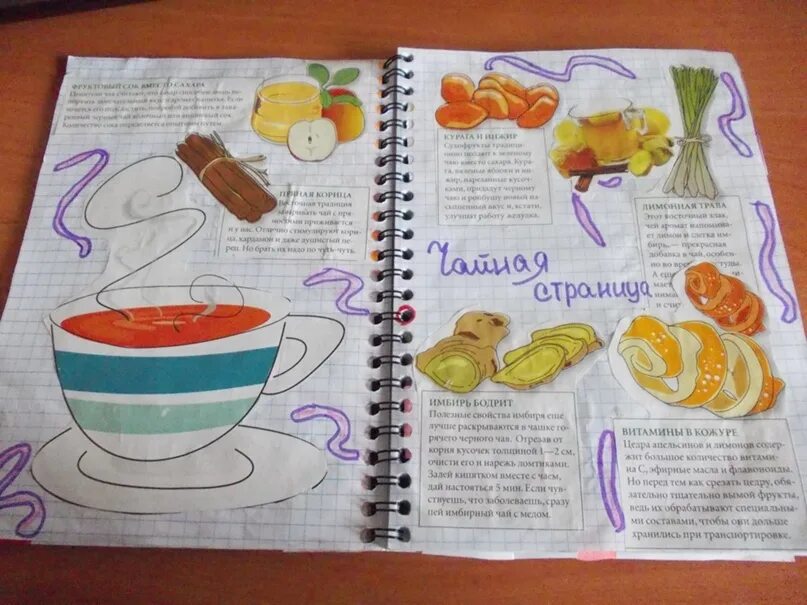 ФРУКТОВЫЙ СОК ВМЕСТО САХАРА
ПРЯНАЯ КОРИЦА
Восточная традиция
заваривать чай с пря-
ностями приживается
и у нас. Отлично стимулируют кори-
ца, кардамон и даже душистый пе-
рец. Но брать их надо по чуть-чуть.
КУРАГА И ИНЖИР
Сухофрукты традици-
онно подают к зеленому
чаю вместо сахара. Кура-
га, вяленые яблоки и ин-
жир, нарезанные кусоч-
ками, придадут черному
чаю и ройбушу новый на-
сыщенный вкус и, кстати,
улучшат работу желудка.
ЛИМОННАЯ ТРАВА
Этот восточный злак,
чей аромат напоминает
лимон и слегка им-
бирь, — прекрасная
добавка в чай, особен-
но во время простуды.
Чайная
страница
ИМБИРЬ БОДРИТ
Полезные свойства имбиря еще
лучше раскрываются в чашке го-
рячего черного чая. Отрезав от
корня кусочек толщиной 1—2 см,
очисти его и нарежь ломтиками.
Залей кипятком вместе с чаем,
дай настояться 5 мин. Если чув-
ствуешь, что заболеваешь, сразу
пей имбирный чай с медом.
ВИТАМИНЫ В КОЖУРЕ
Цедра апельсинов и лимонов содер-
жит большое количество витами-
на С, эфирные масла и флавоноиды.
Но перед тем как срезать цедру, обя-
зательно тщательно вымой фрукты,
ведь их обрабатывают специальны-
ми составами, чтобы они дольше
хранились при транспортировке.